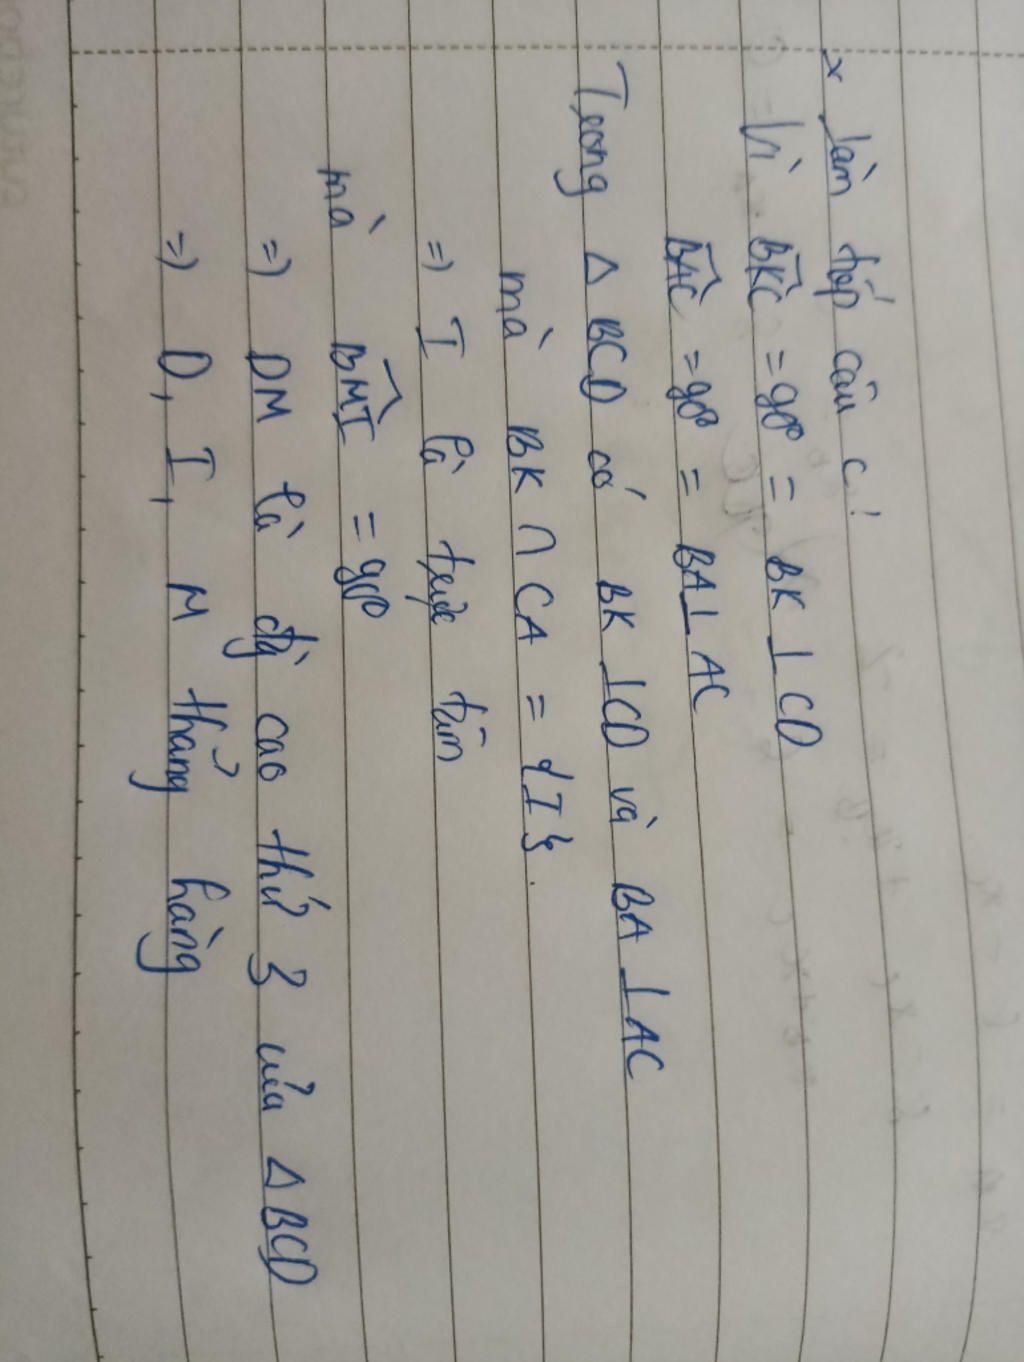 x làm tiếp câu c!
Vì BKC = 90° = BK ⊥ CD
BAC = 90° = BA ⊥ AC
Trong Δ BCD có BK ⊥ CD và BA ⊥ AC
mà BK ∩ CA = {I}.
=) I là trực tâm
mà BMI = 90°
=) DM là đg cao thứ 3 của Δ BCD
=) D, I, M thẳng hàng